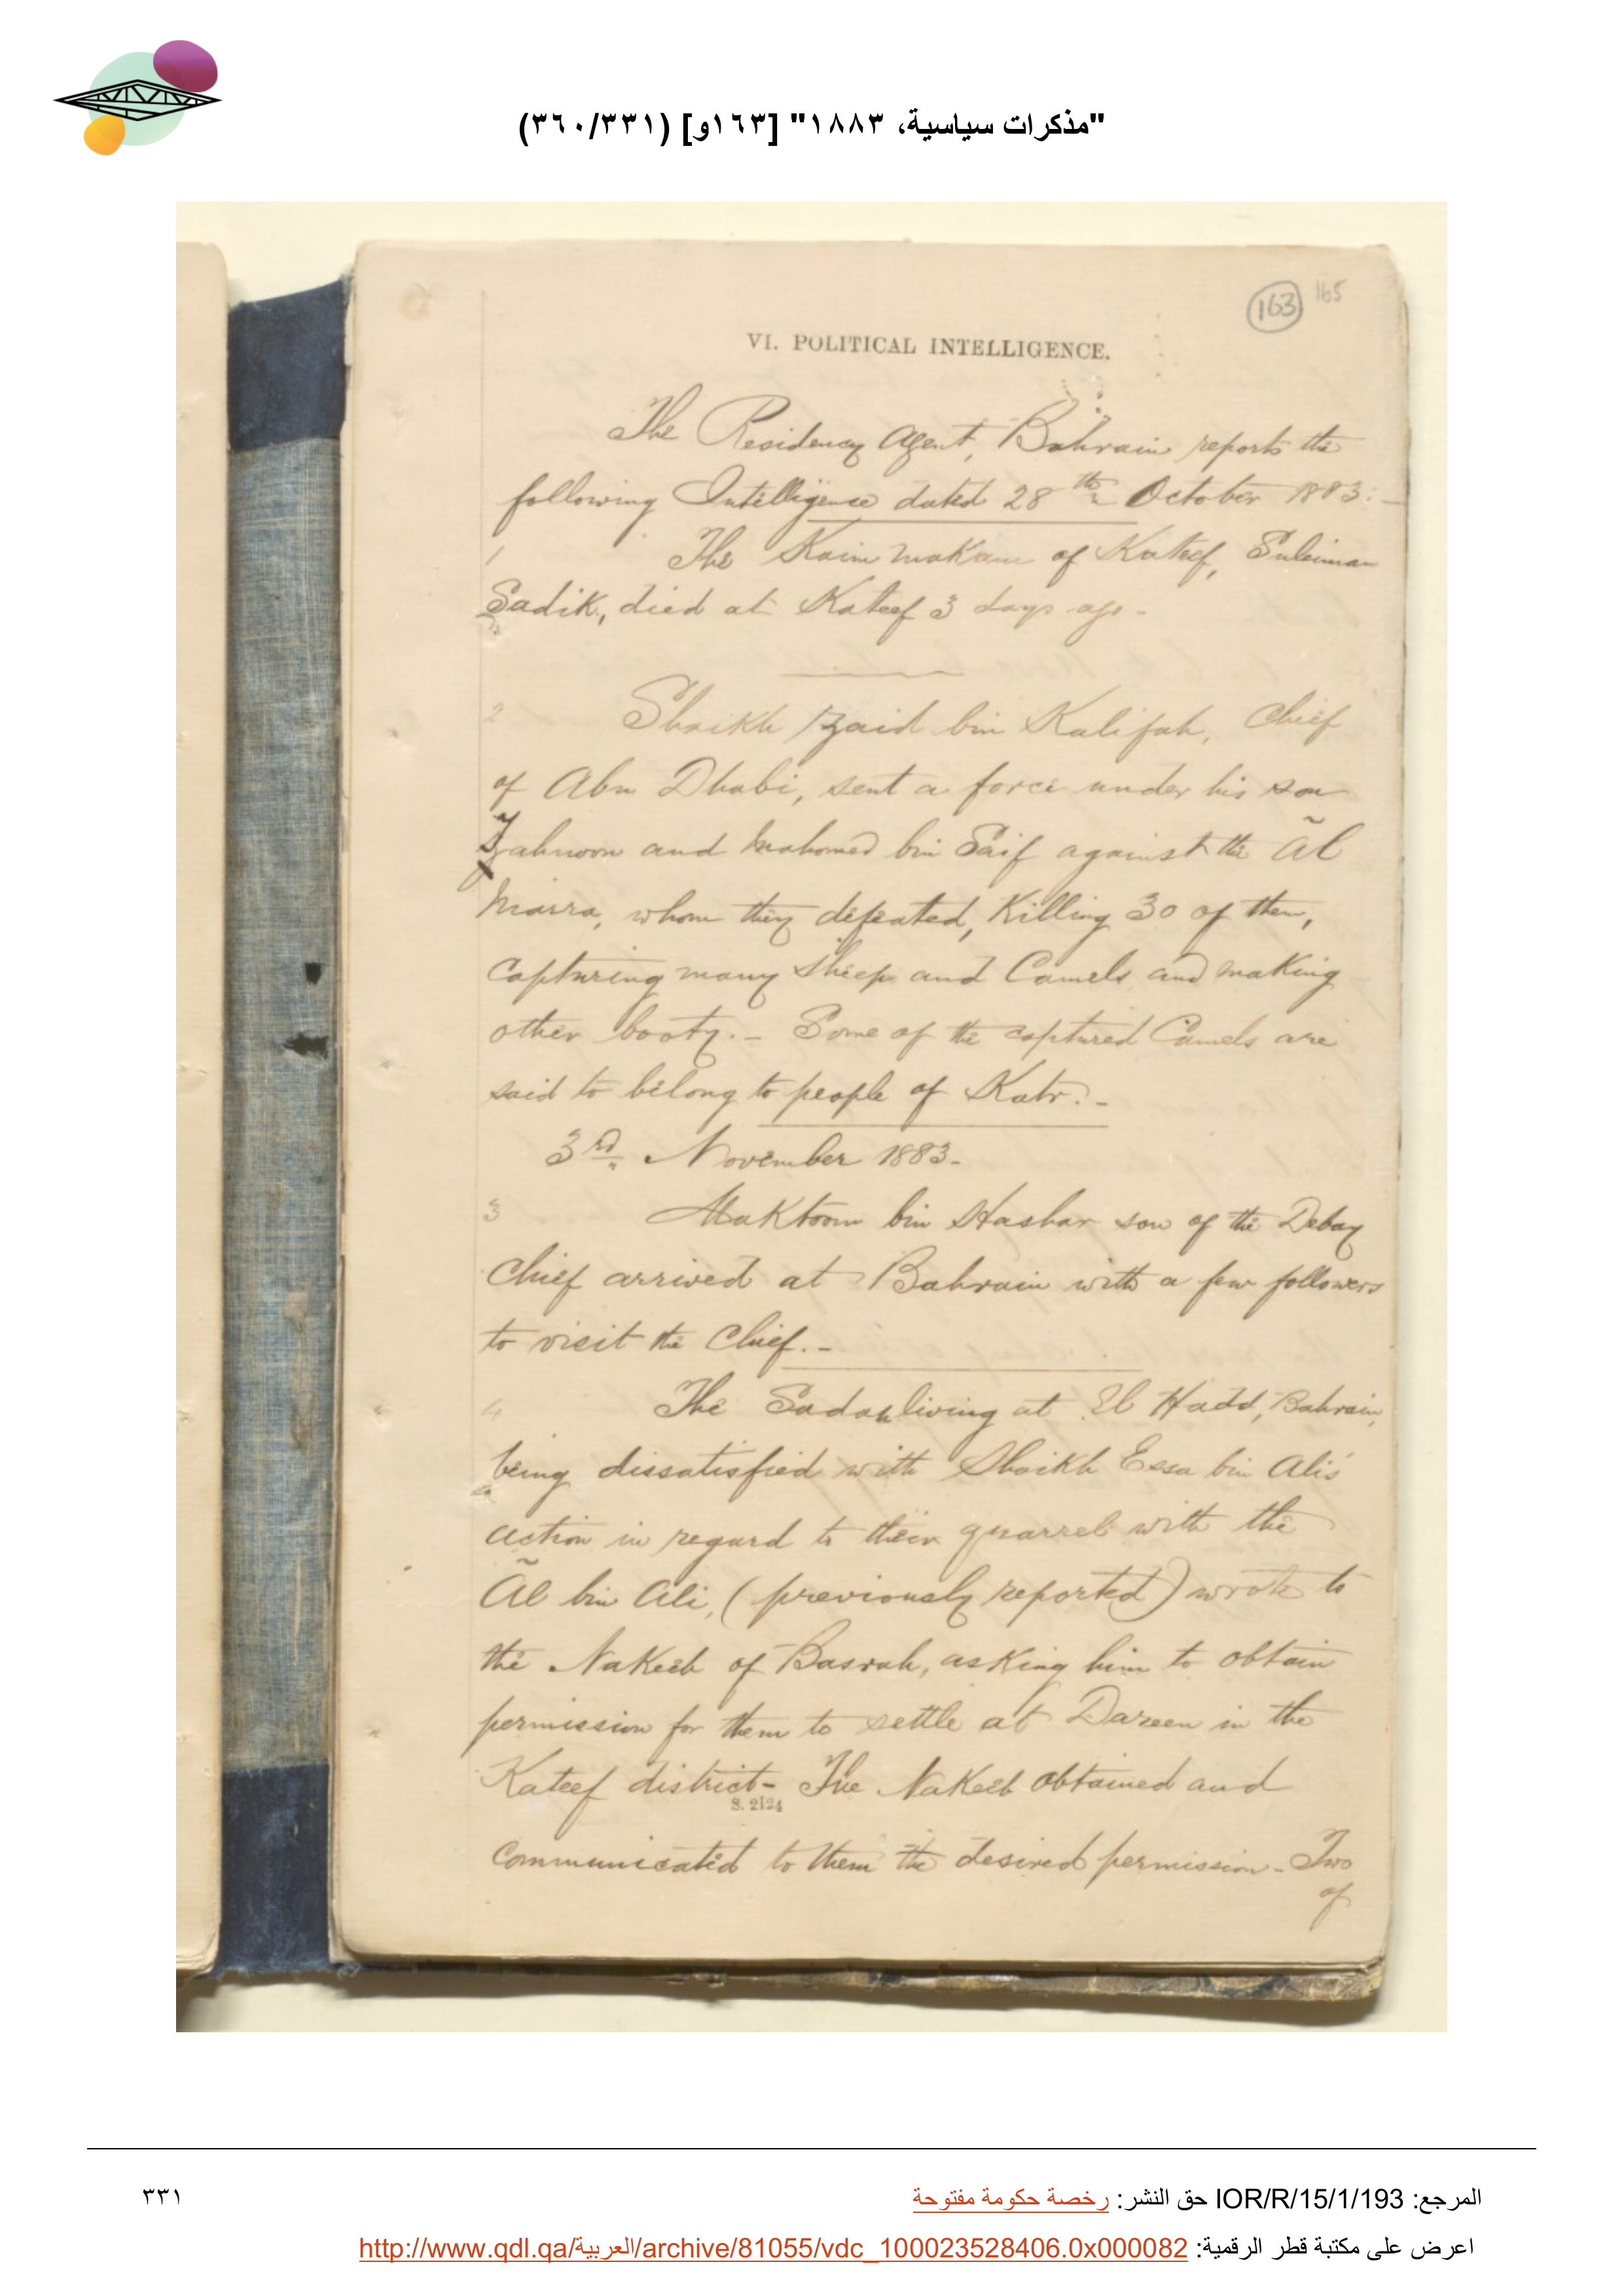 "مذكرات سياسية، ١٨٨٣" [١٦٣و] (٣٦٠/٣٣١)
163 165
VI. POLITICAL INTELLIGENCE.
The Residency Agent, Bahrain reports the
following Intelligence dated 28th October 1883:-
1 The Kaim Makam of Kateef, Suleiman
Sadik, died at Kateef 3 days ago-
2 Shaikh Zaid bin Kalifah, Chief
of Abu Dhabi, sent a force under his son
Tahnoon and Mahomed bin Saif against the Āl
Morra, whom they defeated, Killing 30 of them,
capturing many Sheep and Camels and making
other booty.- Some of the captured Camels are
said to belong to people of Katr.-
3rd November 1883-
3 Maktoom bin Hashar son of the Debay
Chief arrived at Bahrain with a few followers
to visit the Chief.-
4 The Sadah living at El Hadd, Bahrain,
being dissatisfied with Shaikh Essa bin Ali's
action in regard to their quarrel with the
Āl bin Ali, (previously reported) wrote to
the Nakeeb of Basrah, asking him to obtain
permission for them to settle at Dareen in the
Kateef district- The Nakeeb obtained and
S. 2124
communicated to them the desired permission- Two
of
المرجع: IOR/R/15/1/193 حق النشر: رخصة حكومة مفتوحة
٣٣١
اعرض على مكتبة قطر الرقمية: http://www.qdl.qa/العربية/archive/81055/vdc_100023528406.0x000082